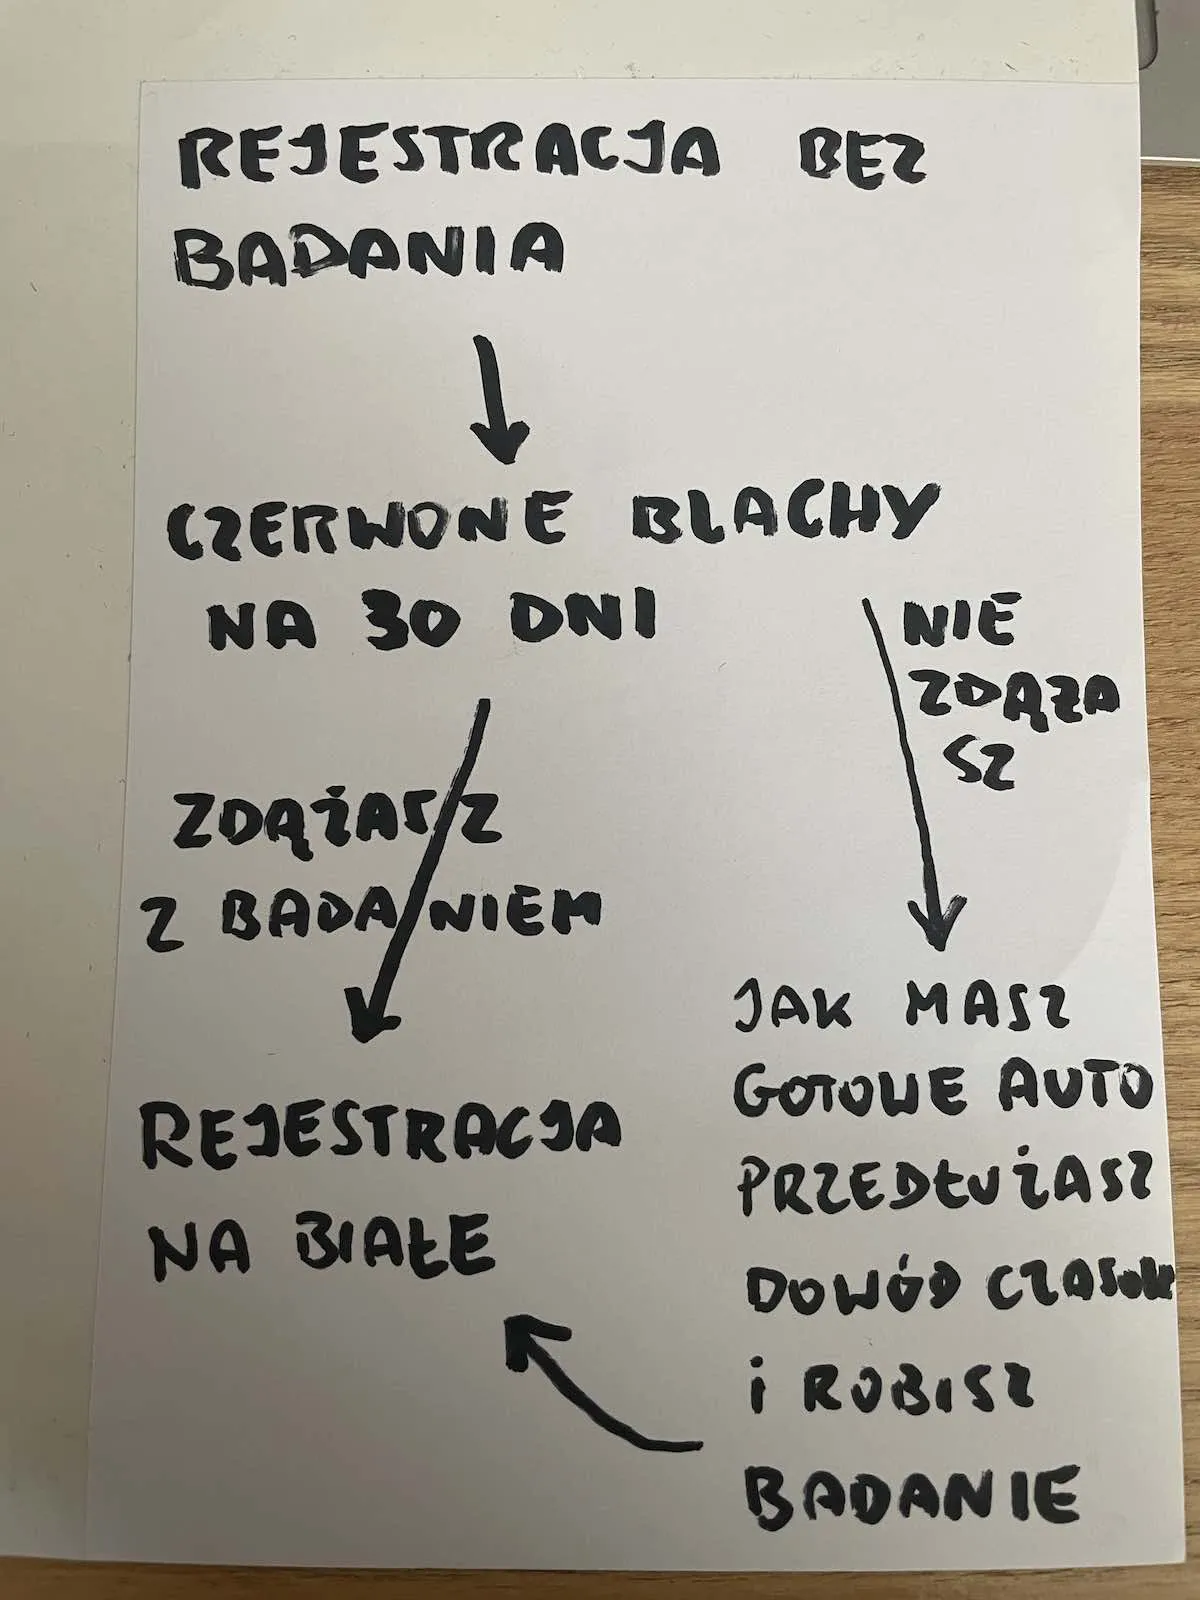 REJESTRACJA BEZ
BADANIA
CZERWONE BLACHY
NA 30 DNI
NIE
ZDĄŻA
SZ
ZDĄŻASZ
Z BADANIEM
REJESTRACJA
NA BIAŁE
JAK MASZ
GOTOWE AUTO
PRZEDŁUŻASZ
DOWÓD CZASOW
i ROBISZ
BADANIE